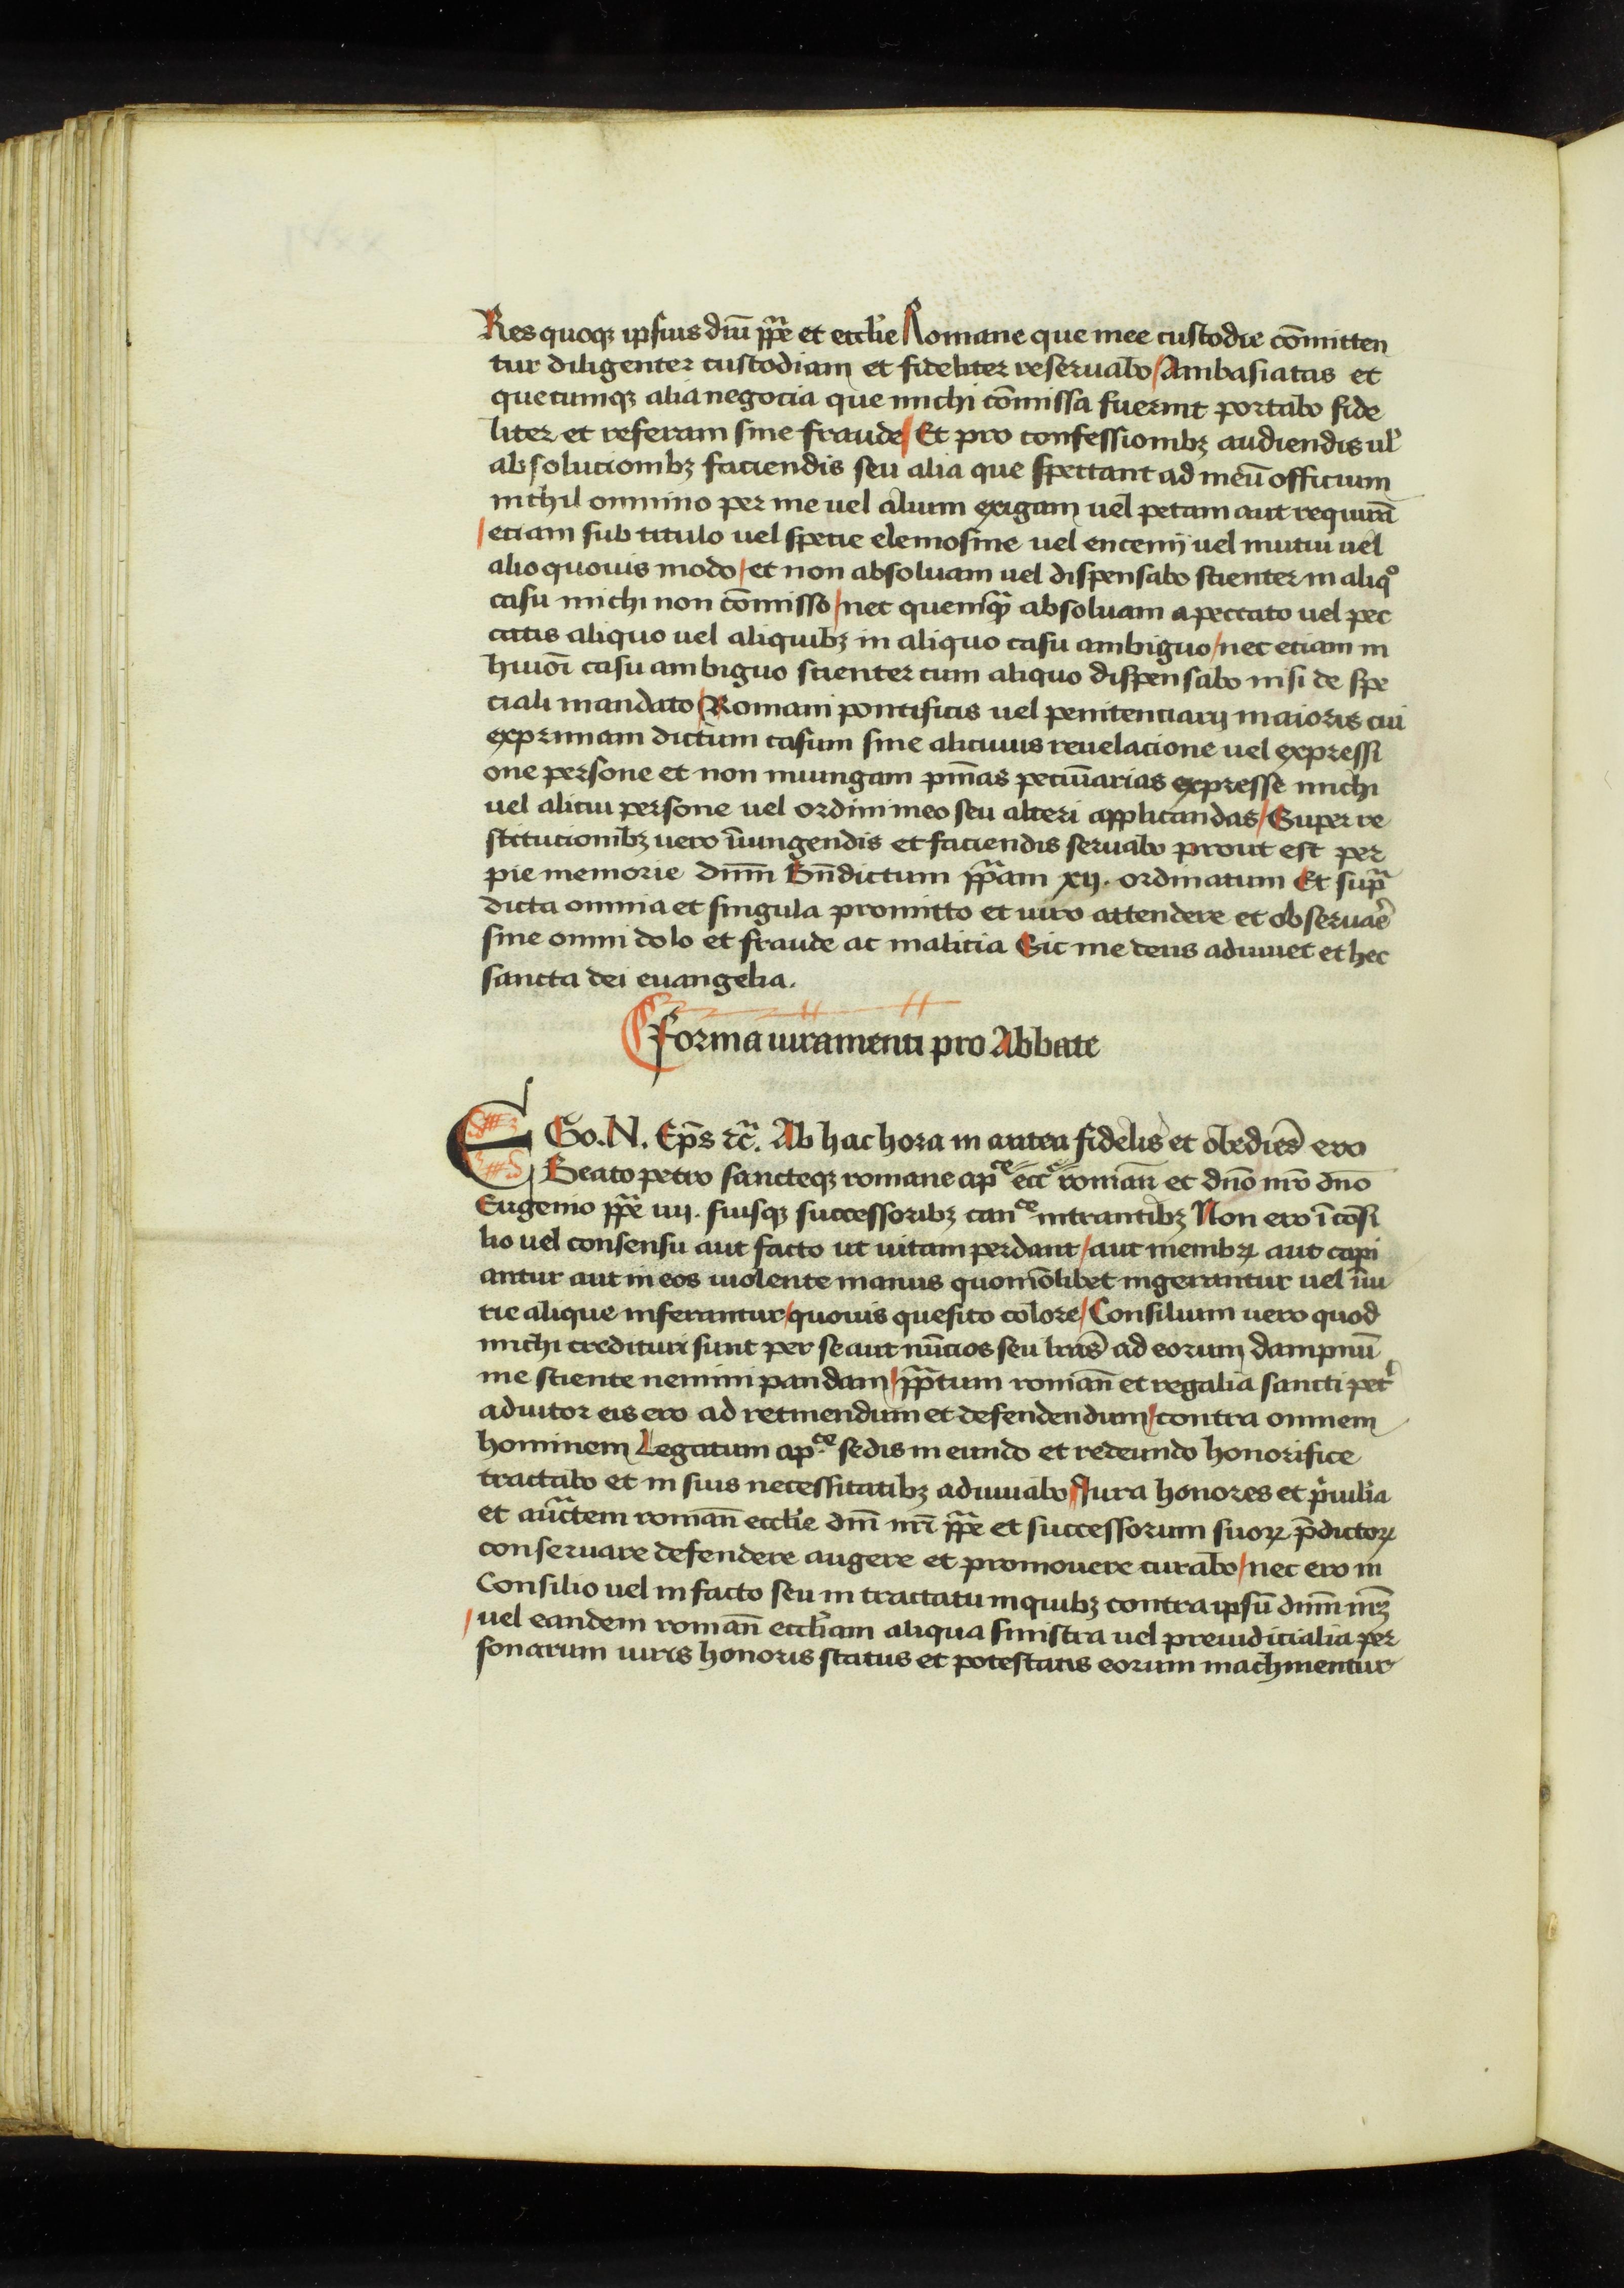 Res quoqꝫ ipsius dn̄i ppe et eccl̄ie Romane que mee custodie cōmitten
tur diligenter custodiam et fideliter reseruabo / Ambasiatas et
quecumqꝫ alia negocia que michi cōmissa fuerint portabo fide
liter et referam sine fraude / Et pro confessionibꝫ audiendis ul̄
absolucionibꝫ faciendis seu alia que spectant ad meū officium
nichil omnino per me uel alium exigam uel petam aut requirā
/ etiam sub titulo uel specie elemosine uel encenij uel mutui uel
alio quouis modo / et non absoluam uel dispensabo scienter in aliqº
casu michi non cōmisso / nec quemqꝫ absoluam a peccato uel pec
catis aliquo uel aliquibꝫ in aliquo casu ambiguo / nec etiam in
huiōi casu ambiguo scienter cum aliquo dispensabo nisi de spe
ciali mandato / Romani pontificis uel penitenciarij maioris cui
exprimam dictum casum sine alicuius reuelacione uel expressi
one persone et non iniungam pn̄ias pecūiarias expresse michi
uel alicui persone uel ordini meo seu alteri applicandas / Super re
stitucionibꝫ uero iūungendis et faciendis seruabo prout est per
pie memorie dnm̄ Bn̄dictum ppam xij. ordinatum Et supra
dicta omnia et singula promitto et iuro attendere et obseruar̄e
sine omni dolo et fraude ac malicia Sic me deus adiuuet et hec
sancta dei euangelia.
Forma iuramenti pro Abbate
EGo. N. Ep̄s ⁊c̄. Ab hac hora in antea fidelis et obediēs ero
Beato petro sancteqꝫ romane apᶜᵉ ecc̄ᵉ romañ et dn̄o nr̄o dn̄o
Eugenio ppe iiij. suisqꝫ successoribꝫ canᶜᵉ intrantibꝫ Non ero ī cōsi
lio uel consensu aut facto ut uitam perdant / aut membꝝ aut capi
antur aut in eos uiolente manus quomōlibet ingerantur uel iīu
rie alique inferantur / quouis quesito colore / Consilium uero quod
michi credituri sunt per se aut nūcios seu lr̄as ad eorum dampnū
me sciente nemini pandam / ppatum romañ et regalia sancti petⁱ
adiutor eis ero ad retinendum et defendendum / contra omnem
hominem Legatum apᶜᵉ sedis in eundo et redeundo honorifice
tractabo et in suis necessitatibꝫ adiuuabo Iura honores et pⁱuil̄ia
et auc̄tem romañ eccl̄ie dn̄i nr̄i ppe et successorum suoꝝ p̄dictoꝝ
conseruare defendere augere et promouere curabo / nec ero in
Consilio uel in facto seu in tractatu in quibꝫ contra ipsū dnm̄ nr̄ꝫ
/ uel eandem romañ eccl̄iam aliqua sinistra uel preiudicialia per
sonarum iuris honoris status et potestatis eorum machinentur